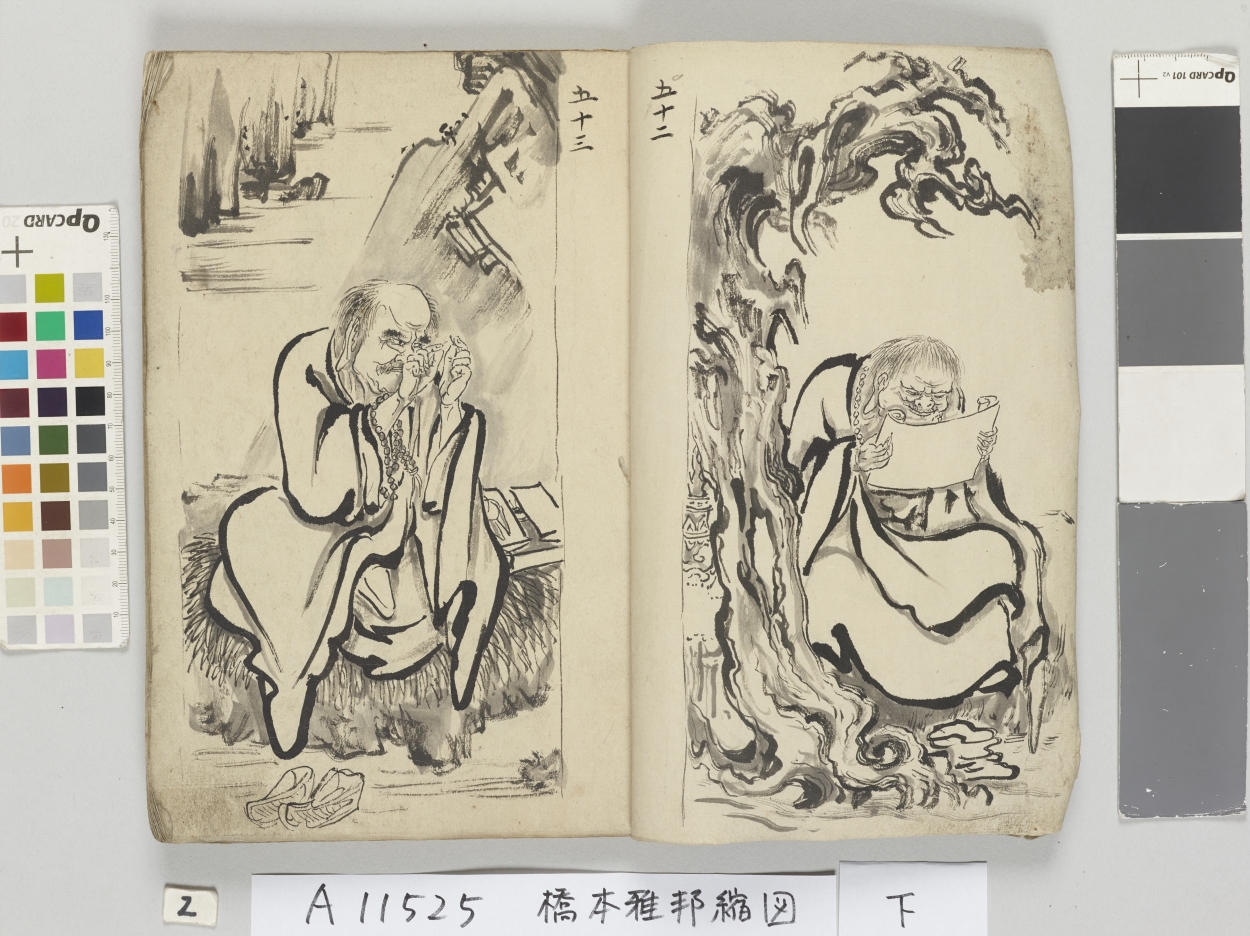 五十二
五十三
QPCARD 101 v2
QPCARD 20
2
A 11525 橋本雅邦縮図 下